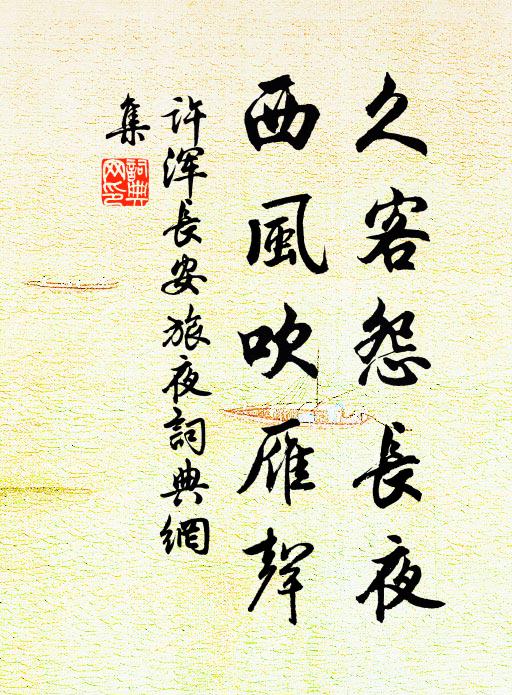 久客怨長夜
西風吹雁聲
许渾長安旅夜詞典網
集
詞典網印